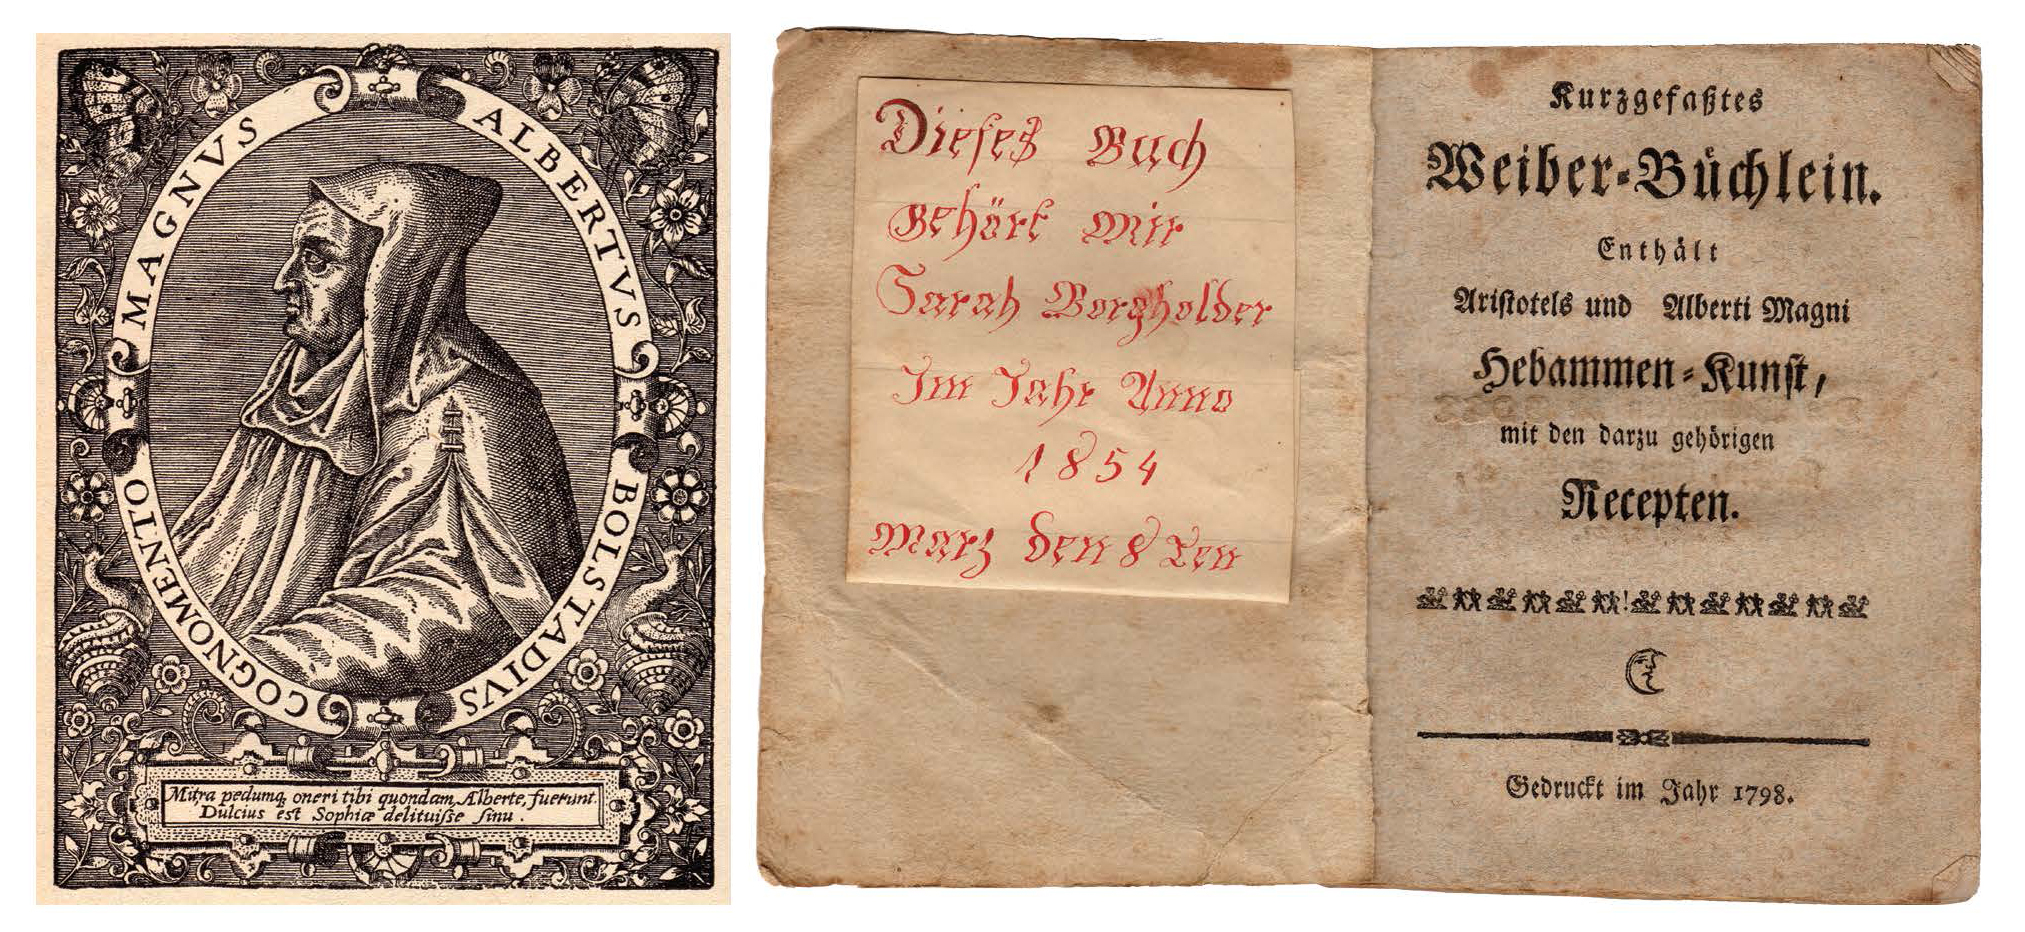 ALBERTVS
BOLSTADIVS
COGNOMENTO
MAGNVS
Mitra pedumq́ oneri tibi quondam, Alberte, fuerunt.
Dulcius est Sophiæ delituiſse ſinu.
Dieſes Buch
Gehört Mir
Sarah Borgholder
Im Jahr Anno
1854
Marz den 8 Ten
Kurzgefaßtes
Weiber-Büchlein.
Enthält
Ariſtotels und Alberti Magni
Hebammen-Kunſt,
mit den darzu gehörigen
Recepten.
Gedruckt im Jahr 1798.